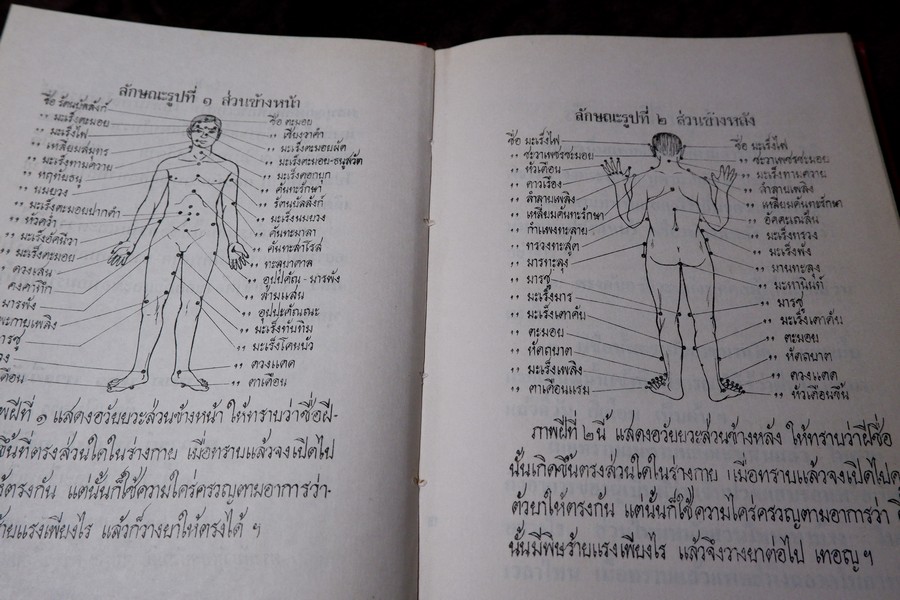 ลักษณะรูปที่ ๑ ส่วนข้างหน้า
ชื่อ รัตนบัลลังก์
,, มะเร็งตะมอย
,, มะเร็งไฟ
,, เหลี่ยมสมุทร
,, มะเร็งทามควาย
,, หฤทัยธนู
,, นมยวง
,, มะเร็งตะมอยปากดำ
,, หัวคว่ำ
,, มะเร็งอัคนีวา
,, มะเร็งตะมอย
,, ดวงเส้น
มารฝัง
ชื่อ ตะมอย
,, เชียงวาคำ
,, มะเร็งตะมอยผัด
,, มะเร็งตะมอย-ธนูสวัด
,, มะเร็งคอกบุก
,, คันทะรักษา
,, รัตนบัลลังก์
,, มะเร็งนมยวง
,, คันทะมาลา
,, คันทะลาโรส์
,, ทะลบาดาล
,, อุปปัคัณ - มารฝัง
,, สามแสน
,, อุปปะคัณณะ
,, มะเร็งทับทิม
,, มะเร็งโคนบัว
,, ดวงแตด
,, ตาเดือน
ฝีที่ ๑ แสดงอวัยยวะส่วนข้างหน้า ให้ทราบว่าชื่อฝี-
ขึ้นที่ตรงส่วนใดในร่างกาย เมื่อทราบแล้วจงเปิดไป
ตรงกัน แต่นั้นก็ใช้ความใคร่ครวญตามอาการว่า-
ร้ายแรงเพียงไร แล้วก็วางยาให้ตรงได้ ฯ
ลักษณะรูปที่ ๒ ส่วนข้างหลัง
ชื่อ มะเร็งไฟ
,, ชะวาเพชรชะมอย
,, หัวเดือน
,, ดาวเรือง
,, ลำลาบเพลิง
,, เหลี่ยมคันทะรักษา
,, กำแพงทะลาย
,, ทรวงทะลุด
,, มารทะลุง
,, มารชู
,, มะเร็งมาร
,, มะเร็งเตาคัน
,, ตะมอย
,, หัดถบาด
,, มะเร็งเพลิง
,, ตาเดือนแรม
ชื่อ มะเร็งไฟ
,, ชะวาเพชรชะมอย
,, มะเร็งทามควาย
,, ลำลาบเพลิง
,, เหลี่ยมคันทะรักษา
,, อัคตะเณสัน
,, มะเร็งทรวง
,, มะเร็งฝัง
,, มานทะลุง
,, มะหานินกัท์
,, มารชู
,, มะเร็งเตาคัน
,, ตะมอย
,, หัดถบาด
,, ดวงแตด
,, หัวเดือนขึ้น
ภาพฝีที่ ๒ นี้ แสดงอวัยยวะส่วนข้างหลัง ให้ทราบว่าฝีชื่อ
นั้นเกิดขึ้นตรงส่วนใดในร่างกาย เมื่อทราบแล้วจงเปิดไป
ตัวยาให้ตรงกัน แต่นั้นก็ใช้ความใคร่ครวญตามอาการว่า
นั้นมีพิษร้ายแรงเพียงไร แล้วจึงวางยาต่อไป เทอญ ฯ